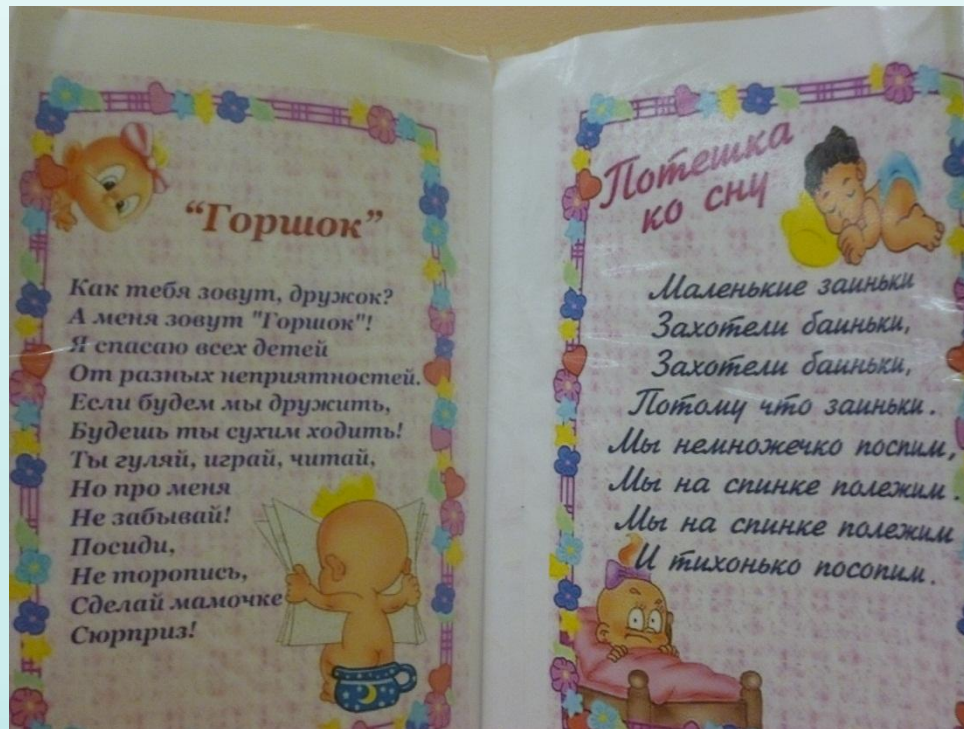 "Горшок"
Как тебя зовут, дружок?
А меня зовут "Горшок"!
Я спасаю всех детей
От разных неприятностей.
Если будем мы дружить,
Будешь ты сухим ходить!
Ты гуляй, играй, читай,
Но про меня
Не забывай!
Посиди,
Не торопись,
Сделай мамочке
Сюрприз!
Потешка
ко сну
Маленькие заиньки
Захотели баиньки,
Захотели баиньки,
Потому что заиньки.
Мы немножечко поспим,
Мы на спинке полежим.
Мы на спинке полежим
И тихонько посопим.